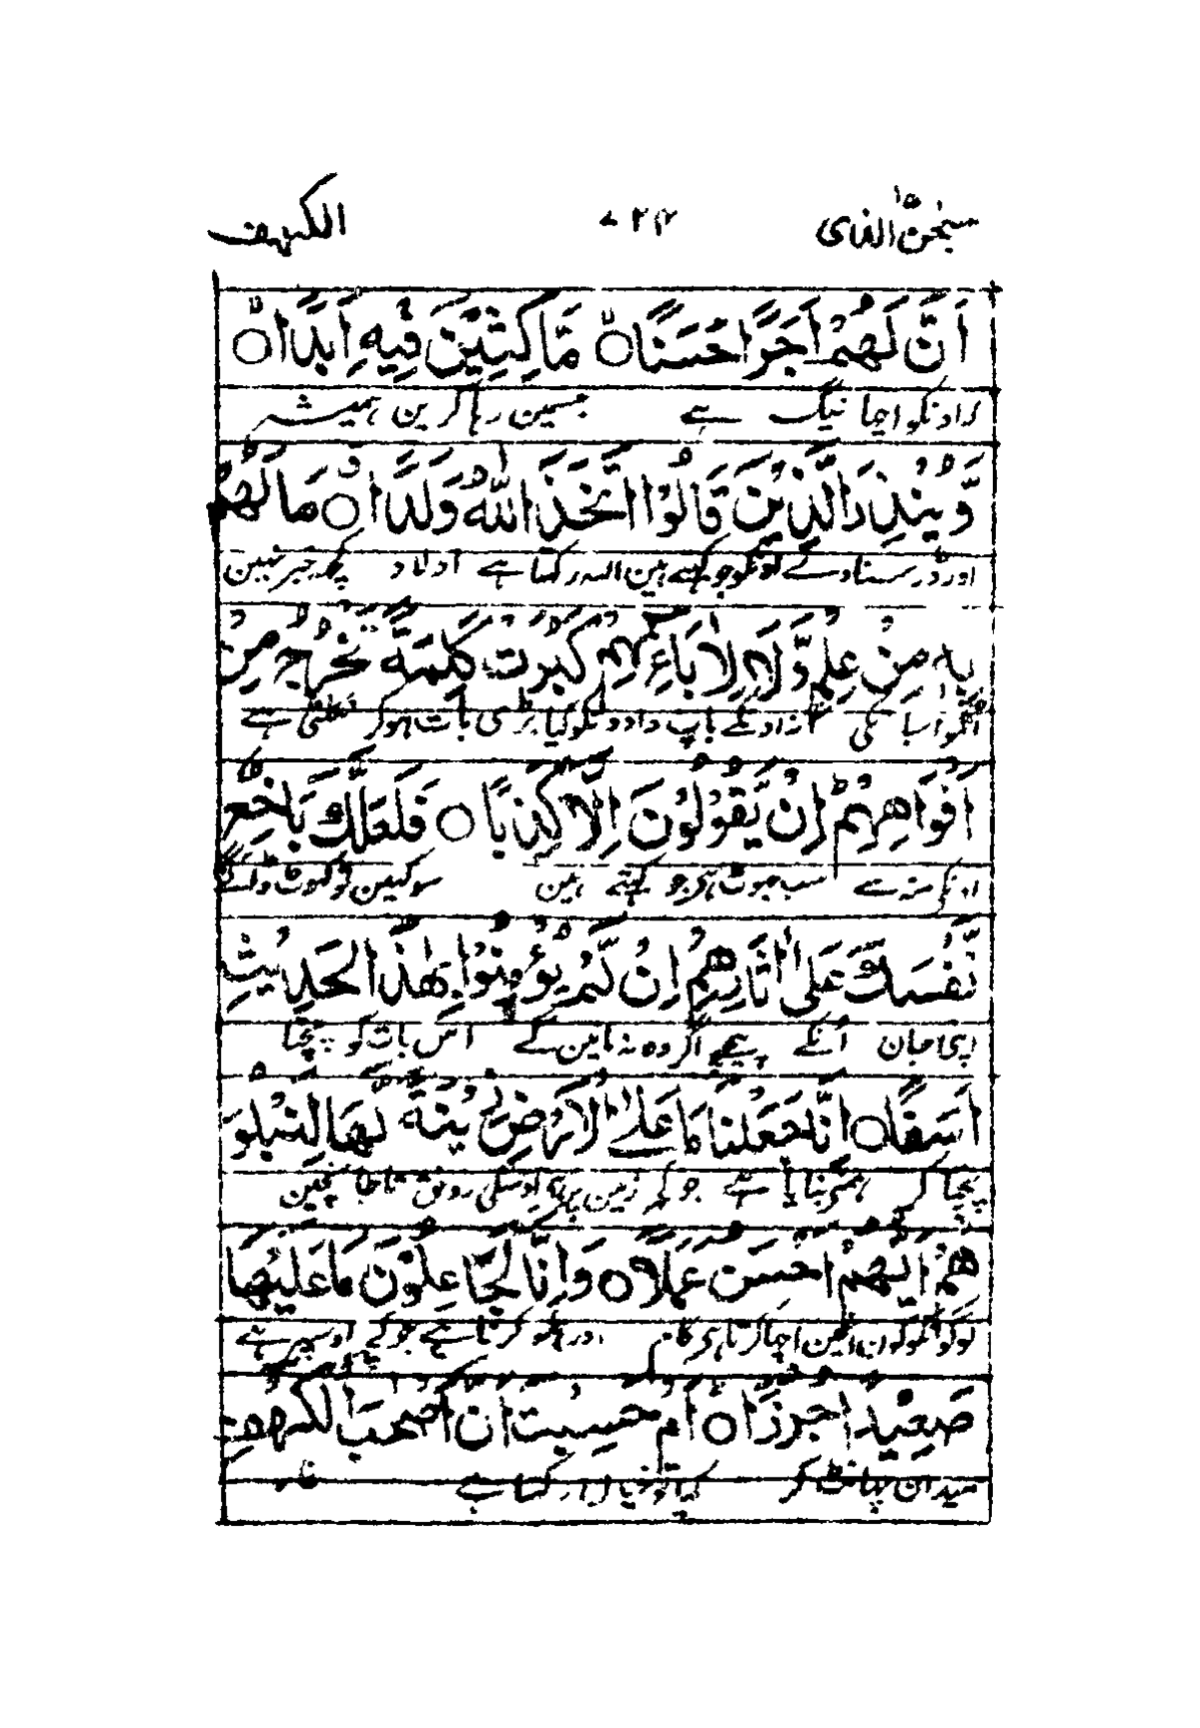 سبحن الذی ۷۲۴ الکہف
اَنَّ لَهُمْ اَجْرًا حَسَنًا ۙ مَّاكِثِيْنَ فِيْهِ اَبَدًا ۙ
کہ اونکو اچھا نیگ ہے جسمین رہا کرین ہمیشہ
وَّيُنْذِرَ الَّذِيْنَ قَالُوا اتَّخَذَ اللّٰهُ وَلَدًا ۗ مَا لَهُمْ
اور ڈر سناوے اونکو جو کہتے ہین اللہ رکھتا ہے اولاد کچھ خبر نہین
بِهٖ مِنْ عِلْمٍ وَّلَا لِاٰبَآءِهِمْ كَبُرَتْ كَلِمَةً تَخْرُجُ مِنْ
انکو اس بات کی نہ اونکے باپ دادونکو کیا بڑی بات ہوکر نکلتی ہے
اَفْوَاهِهِمْ اِنْ يَّقُوْلُوْنَ اِلَّا كَذِبًا ۝ فَلَعَلَّكَ بَاخِعٌ
اونکے منہ سے سب جھوٹ ہی جو کہتے ہین سو کہین تو گھونٹ ڈالے گا
نَّفْسَكَ عَلٰٓى اٰثَارِهِمْ اِنْ لَّمْ يُؤْمِنُوْا بِهٰذَا الْحَدِيْثِ
اپنی جان اُنکے پیچھے اگر وہ نہ مانین گے اس بات کو پچتا
اَسَفًا ۝ اِنَّا جَعَلْنَا مَا عَلَى الْاَرْضِ زِيْنَةً لَّهَا لِنَبْلُوَ
پچتا کر ہمنے بنایا ہے جو کچھ زمین پر ہی اوسکی رونق تا جانچین
هُمْ اَيُّهُمْ اَحْسَنُ عَمَلًا ۝ وَاِنَّا لَجَاعِلُوْنَ مَا عَلَيْهَا
لوگونکو کون انمین اچھا کرتا ہی کام اور ہمکو کرنا ہے جو کچھ اوسپر ہے
صَعِيْدًا جُرُزًا ۝ اَمْ حَسِبْتَ اَنَّ اَصْحٰبَ الْكَهْفِ
میدان چھانٹ کر کیا تو خیال رکھتا ہے غار